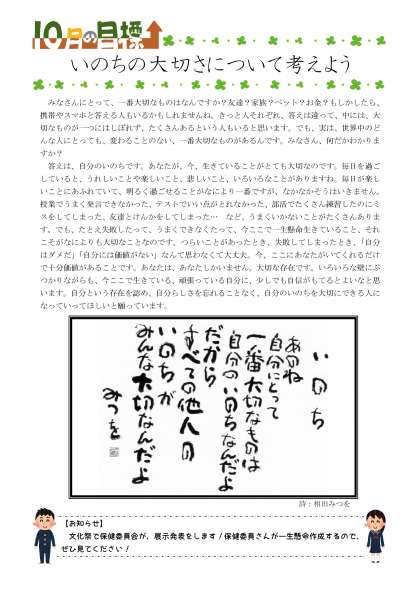 10月の目標
いのちの大切さについて考えよう
みなさんにとって、一番大切なものはなんですか？友達？家族？ペット？お金？もしかしたら、
携帯やスマホと答える人もいるかもしれませんね。きっと人それぞれ、答えは違って、中には、大
切なものが一つにはしぼれず、たくさんあるという人もいると思います。でも、実は、世界中のど
んな人にとっても、変わることのない、一番大切なものがあるんです。みなさん、何だかわかりま
すか？
答えは、自分のいのちです。あなたが、今、生きていることがとても大切なのです。毎日を過ご
していると、うれしいことや楽しいこと、悲しいこと、いろいろなことがありますね。毎日が楽し
いことにあふれていて、明るく過ごせることがなにより一番ですが、なかなかそうはいきません。
授業でうまく発言できなかった、テストでいい点がとれなかった、部活でたくさん練習したのにミ
スをしてしまった、友達とけんかをしてしまった… など、うまくいかないことがたくさんありま
す。でも、たとえ失敗したって、うまくできなくたって、今ここで一生懸命生きていること、それ
こそがなによりも大切なことなのです。つらいことがあったとき、失敗してしまったとき、「自分
はダメだ」「自分には価値がない」なんて思わなくて大丈夫。今、ここにあなたがいてくれるだけ
で十分価値があることです。あなたは、あなたしかいません。大切な存在です。いろいろな壁にぶ
つかりながらも、今ここで生きている、頑張っている自分に、少しでも自信がもてるとよいなと思
います。自分という存在を認め、自分らしさを忘れることなく、自分のいのちを大切にできる人に
なっていってほしいと願っています。
いのち
あのね
自分にとって
一番大切なものは
自分のいのちなんだよ
だから
すべての他人の
いのちが
みんな大切なんだよ
みつを
詩：相田みつを
【お知らせ】
文化祭で保健委員会が、展示発表をします！保健委員さんが一生懸命作成するので、
ぜひ見てください！